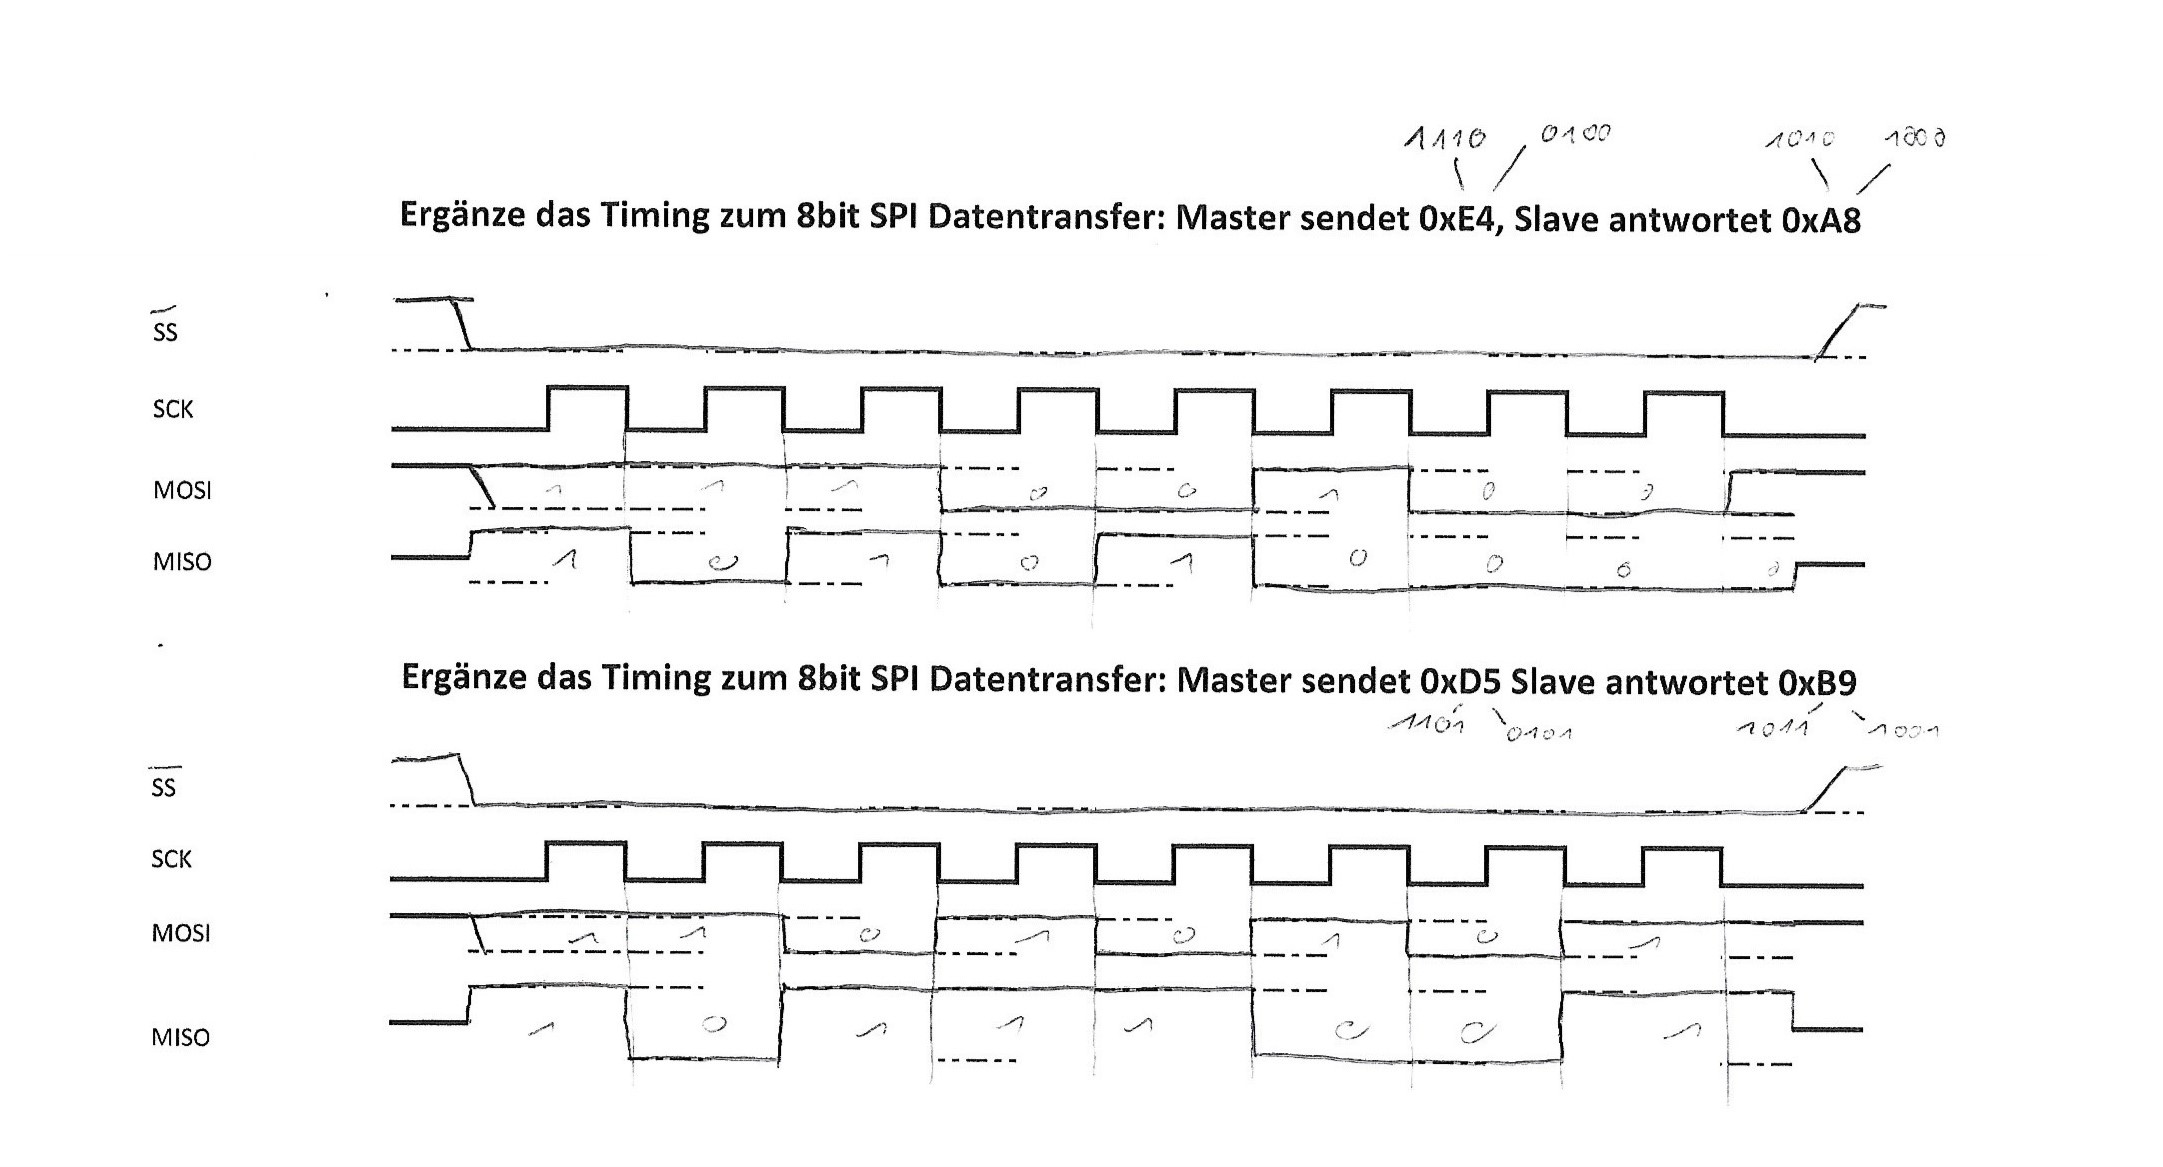 1110 0100 1010 1000
Ergänze das Timing zum 8bit SPI Datentransfer: Master sendet 0xE4, Slave antwortet 0xA8
SS
SCK
MOSI 1 1 1 0 0 1 0 0
MISO 1 0 1 0 1 0 0 0 0
Ergänze das Timing zum 8bit SPI Datentransfer: Master sendet 0xD5 Slave antwortet 0xB9
1101 0101 1011 1001
SS
SCK
MOSI 1 1 0 1 0 1 0 1
MISO 1 0 1 1 1 0 0 1